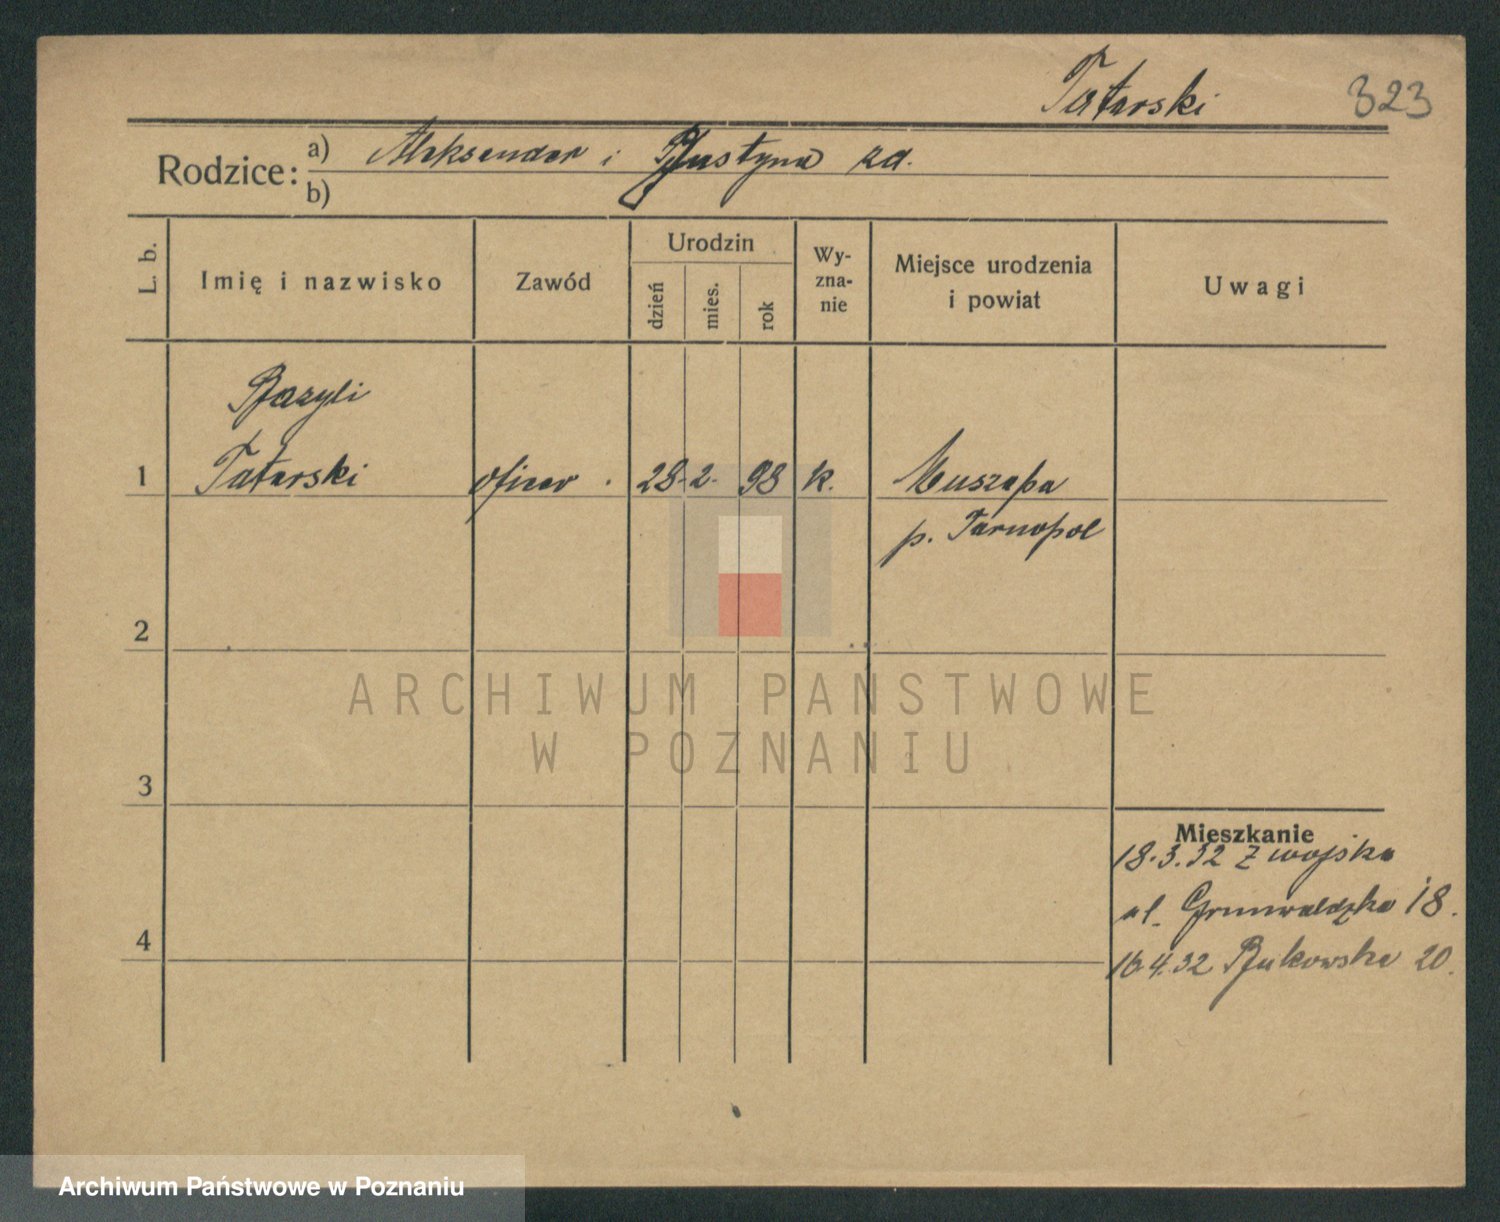 Tatarski 323
Rodzice: a) Aleksander i Justyna zd.
b)
L. b.
Imię i nazwisko
Zawód
Urodzin
dzień
mies.
rok
Wy-
zna-
nie
Miejsce urodzenia
i powiat
Uwagi
Bazyli
1 Tatarski oficer. 28. 2. 98 k.
p. Tarnopol
2
3
4
Mieszkanie
18.3.32 z wojska
ul. Grunwaldzka 18.
16.4.32 Bukowska 20.
ARCHIWUM PAŃSTWOWE
W POZNANIU
Archiwum Państwowe w Poznaniu